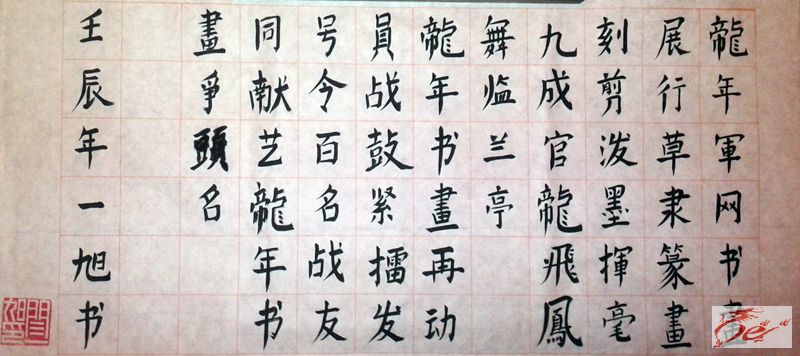 龍年軍网书畫
展行草隶篆畫
刻剪泼墨揮毫
九成官龍飛鳳
舞临兰亭
龍年书畫再动
員战鼓紧擂发
号令百名战友
同献艺龍年书
畫爭頭名
壬辰年一旭书